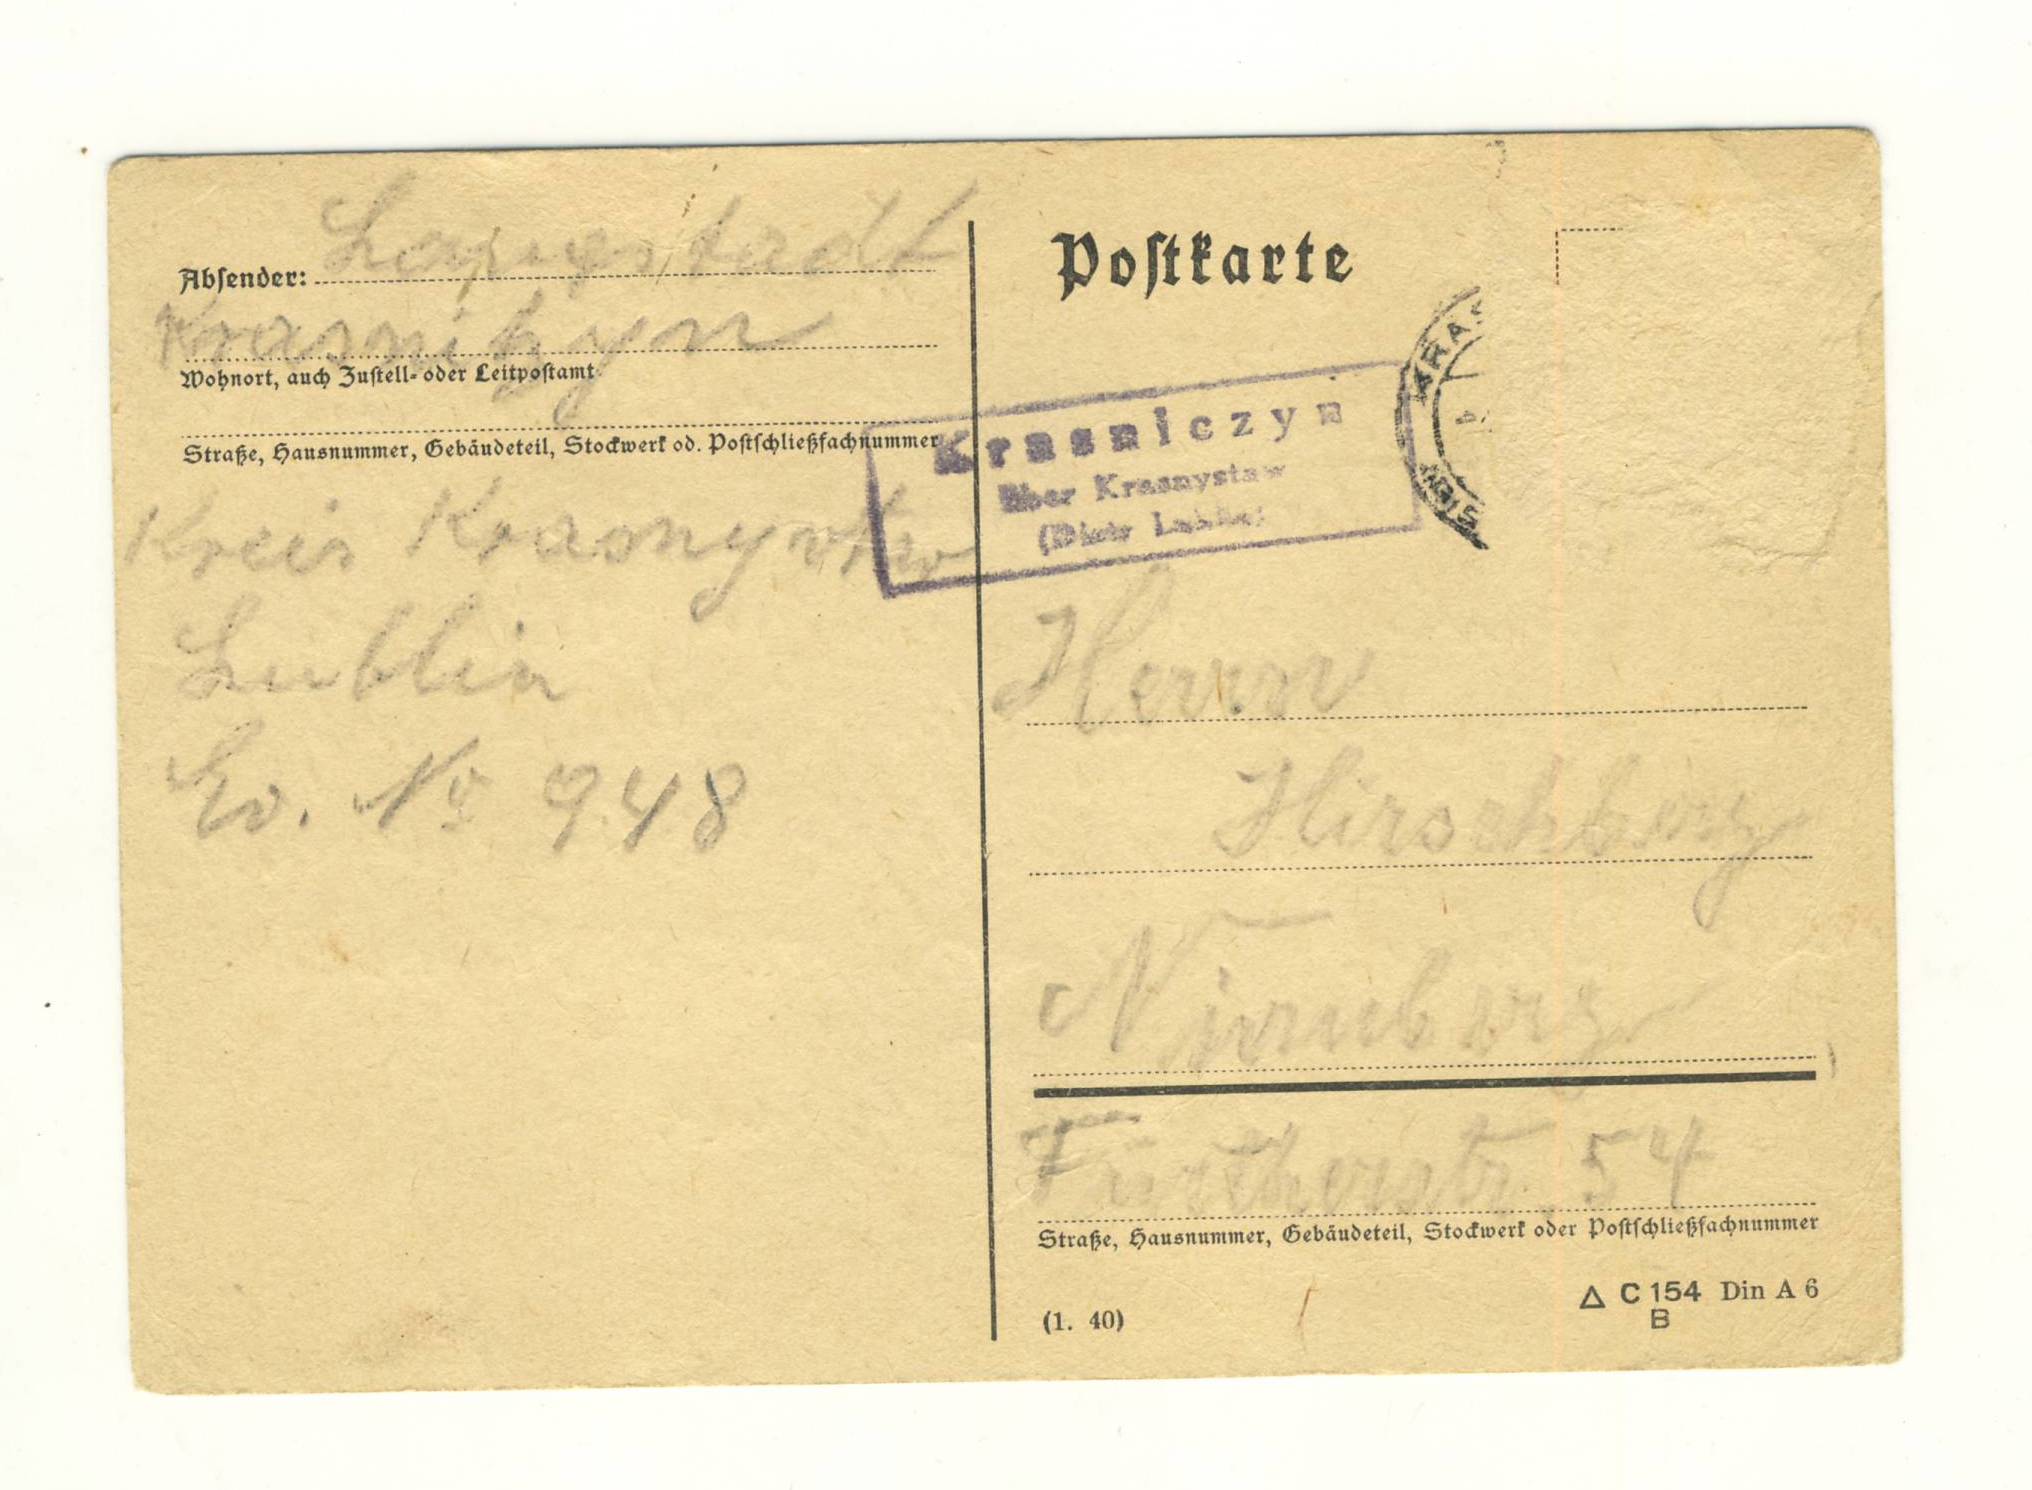 Absender: Langstadt
Krasnitzyn
Wohnort, auch Zustell- oder Leitpostamt
Straße, Hausnummer, Gebäudeteil, Stockwerk od. Postschließfachnummer
Kreis Krasnystaw
Lublin
Ev. Nr 948
Postkarte
KRAS
Krasniczyn
über Krasnystaw
(Distr Lublin)
Herrn
Hirschberg
Nürnberg
Fürtherstr. 54
Straße, Hausnummer, Gebäudeteil, Stockwerk oder Postschließfachnummer
(1. 40)
△ C 154 Din A 6
B